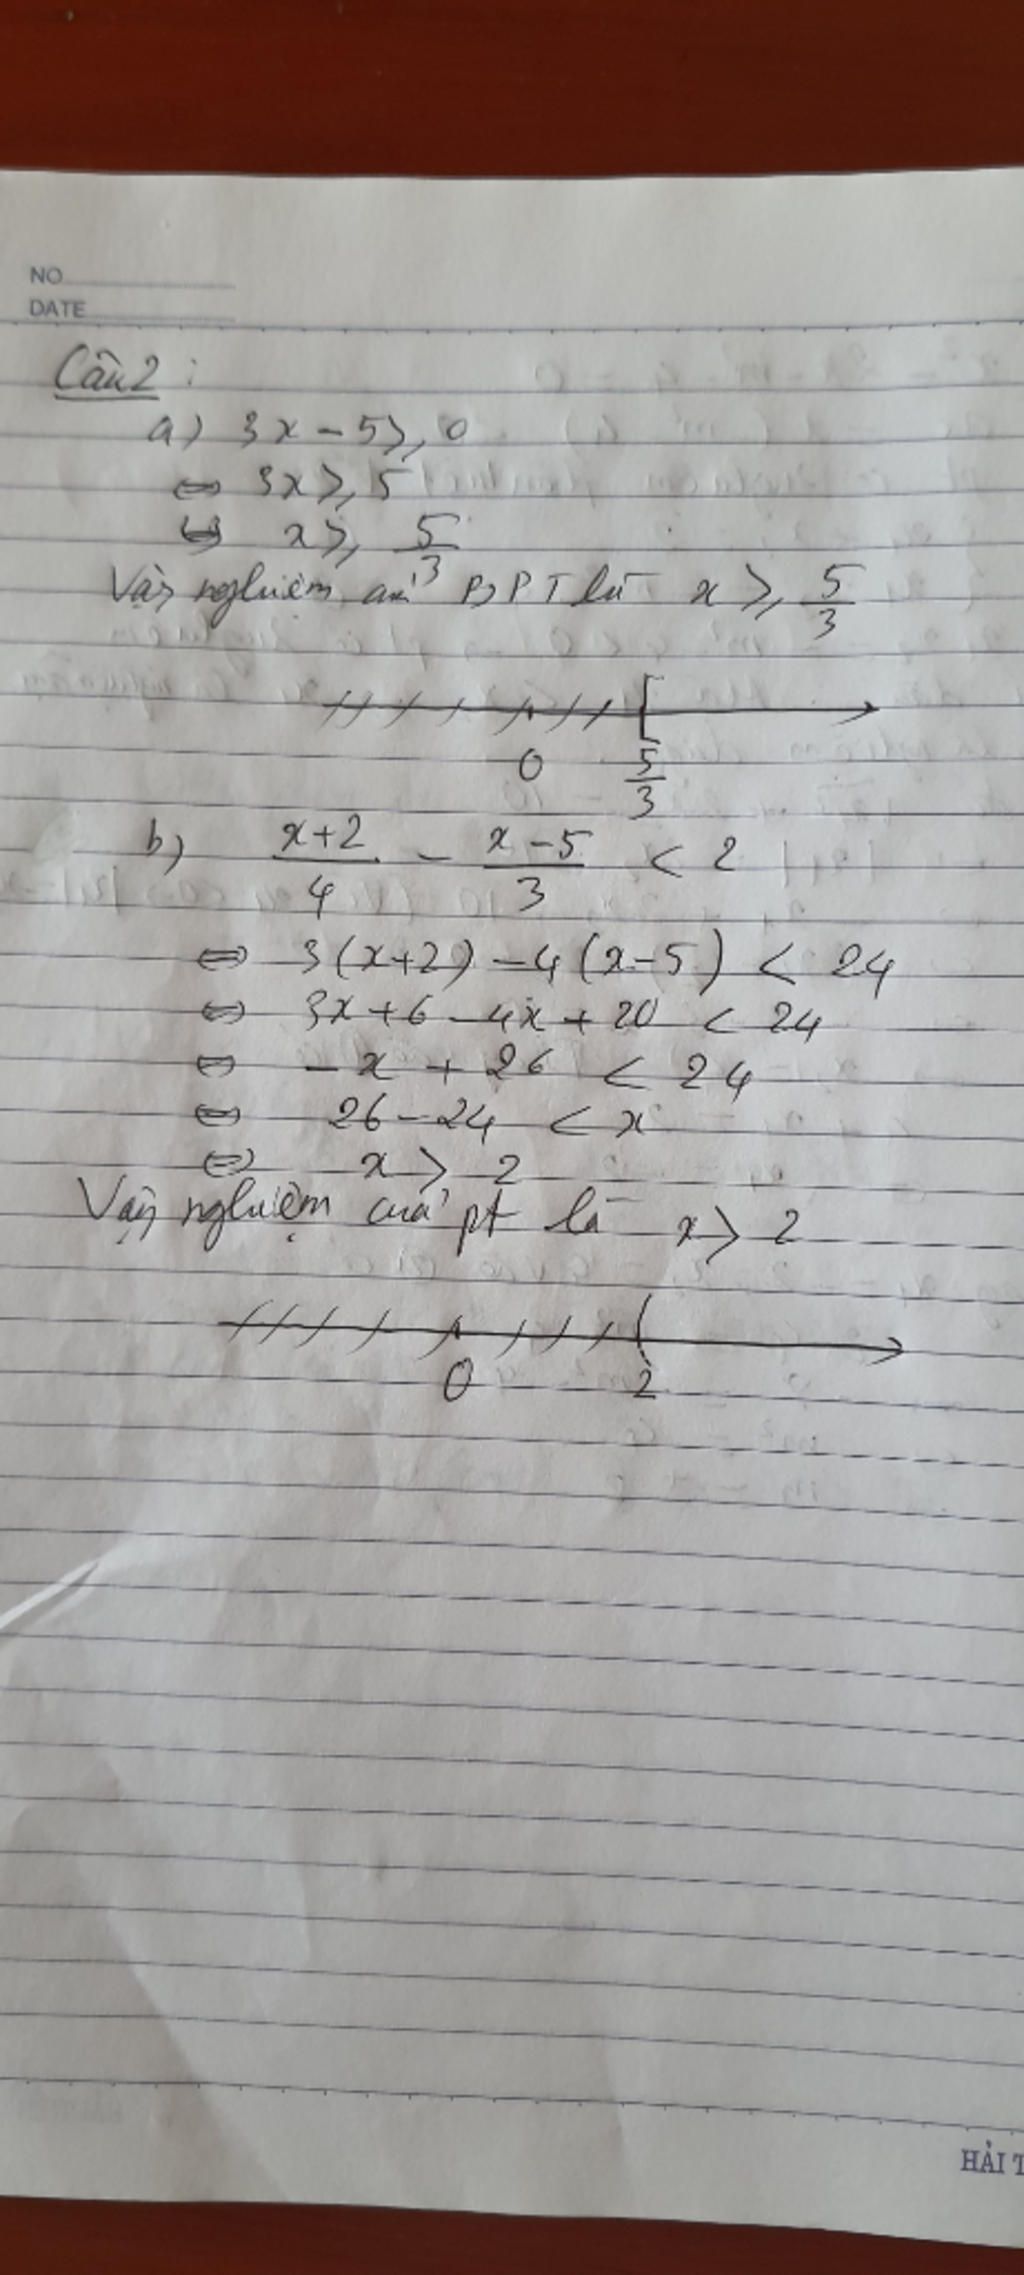 NO
DATE
Câu 2 :
a) 3x - 5 ≥ 0
⇔ 3x ≥ 5
⇔ x ≥ 5/3
Vậy nghiệm của BPT là x ≥ 5/3
0 5/3
b) (x+2)/4 - (x-5)/3 < 2
⇔ 3(x+2) - 4(x-5) < 24
⇔ 3x + 6 - 4x + 20 < 24
⇔ -x + 26 < 24
⇔ 26 - 24 < x
⇔ x > 2
Vậy nghiệm của pt là x > 2
0 2
HẢI T